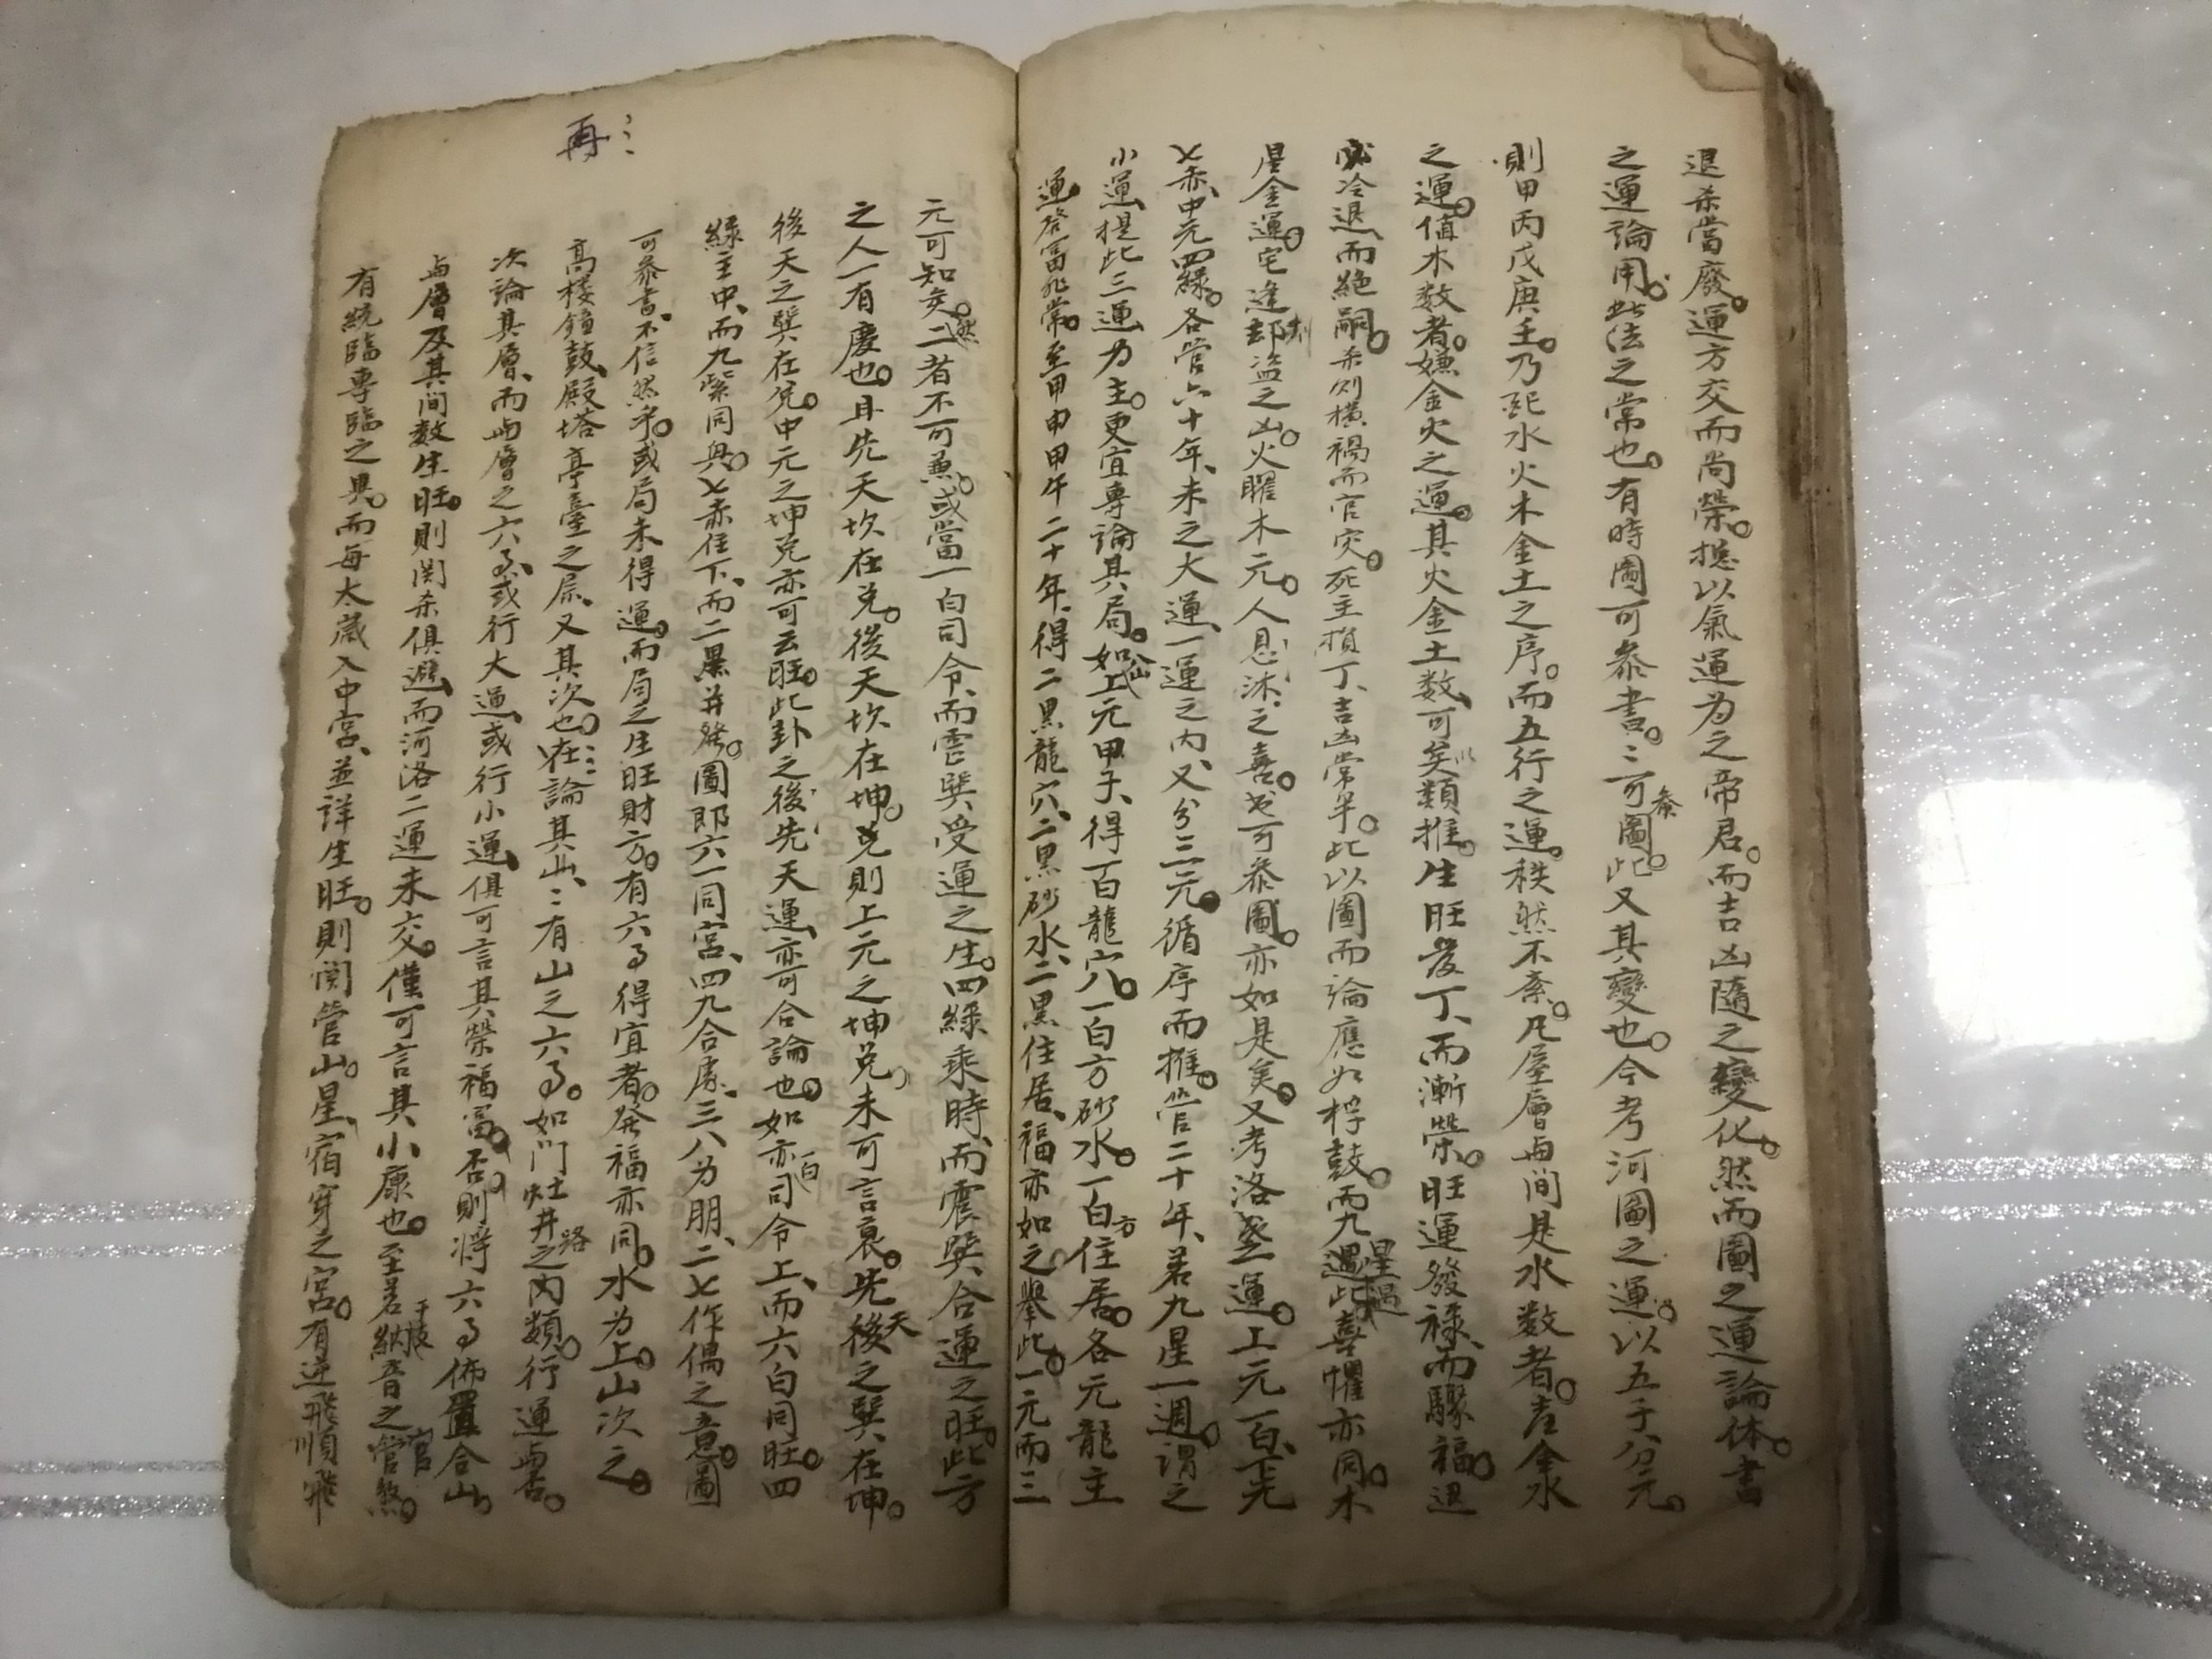 退杀當廢。運方交而尚榮。揔以氣運為之帝君。而吉凶隨之變化。然而圖之運論体。書
之運論用。此法之常也。有時圖可叅書。〻可叅圖。此又其變也。今考河圖之運。以五子分元。
則甲丙戊庚壬。乃配水火木金土之序。而五行之運。秩然不紊。凡屋層與間是水数者。喜金水
之運。值木数者。嫌金火之運。其火金土数、可以類推。生旺發丁、而漸榮。旺運發祿、而驟福。退
必冷退、而絶嗣。杀则横禍而官灾。死主損丁、吉凶常半。此以圖而論應如桴鼓。而九星遇此喜懼亦同。木
星金運。宅逢刼盗之凶。火曜木元。人息沐之喜。書可叅圖。亦如是矣。又考洛書運。上元一白、下元
七赤、中元四綠。各管六十年、未之大運、一運之内、又分三元。循序而推。管二十年、若九星一週。謂之
小運、提此三運为主。更宜專論其局。如八山上元甲子、得一白龍穴。一白方砂水。一白方住居。各元龍主
運發富非常。至甲申甲午二十年、得二黑龍穴、二黑砂水、二黑住居、福亦如之、舉此。一元而三
元可知矣。然二者不可兼。或當一白司令、而震巽受運之生。四綠乘時、而震巽合運之旺。此方
之人一有慶也。且先天坎在兌。後天坎在坤。則上元之坤兌、未可言衰。先後天之巽在坤。
後天之巽在兌。中元之坤兌亦可云旺。此卦之後先天運、亦可合論也。如一白司令上、而六白同旺。四
綠主中、而九紫同興。七赤住下、而二黑并發。圖即六一同宮、四九合處、三八为朋、二七作偶之意。圖
可叅書、不信然乎。或局未得運。而局之生旺財方。有六事得宜者。發福亦同。水为上。山次之。
高楼鐘鼓、殿塔亭臺之屬、又其次也。再論其山、〻有山之六事。如門灶井路之内類。行運與否。
次論其層、而與層之六事、或行大運、或行小運、俱可言其榮福富。否則將六事佈置合山、
與層及其间数生旺。則関杀俱避、而河洛二運未交。僅可言其小康也。至若干支納音之官煞。
有統臨專臨之異。而每太歲入中宮、並詳生旺。則関管山。星宿穿之宮。有逆飛順飛
再